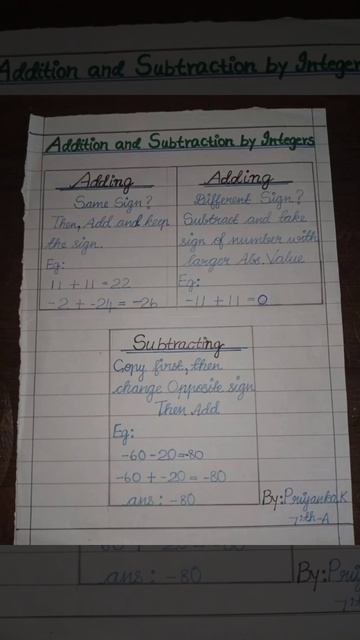 Addition and Subtraction by Integers
Addition and Subtraction by Integers
Adding
Same Sign?
Then, Add and keep
the sign.
Eg:
11 + 11 = 22
-2 + -24 = -26
Adding
Different Sign?
Subtract and take
sign of number with
larger Abs. Value
Eg:
-11 + 11 = 0
Subtracting
Copy first, then
change Opposite sign
Then Add
Eg:
-60 - 20 = -80
-60 + -20 = -80
ans: -80
By: Priyanka.K
7th-A
ans: -80
By: Pri